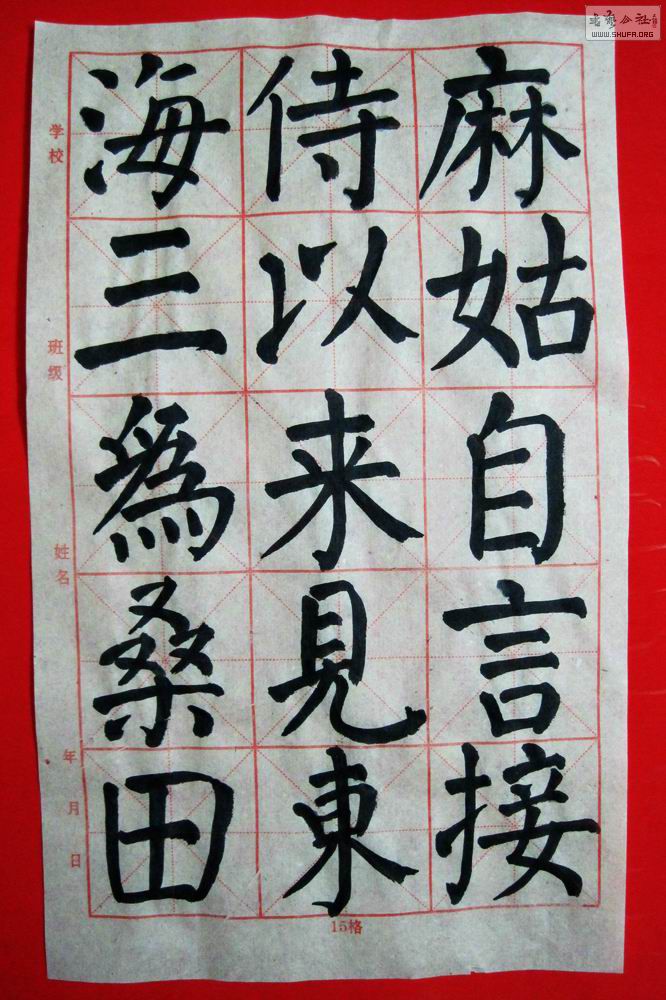 麻姑自言接
侍以来見東
海三爲桑田
学校
班级
姓名
年 月 日
15格
WWW.SHUFA.ORG